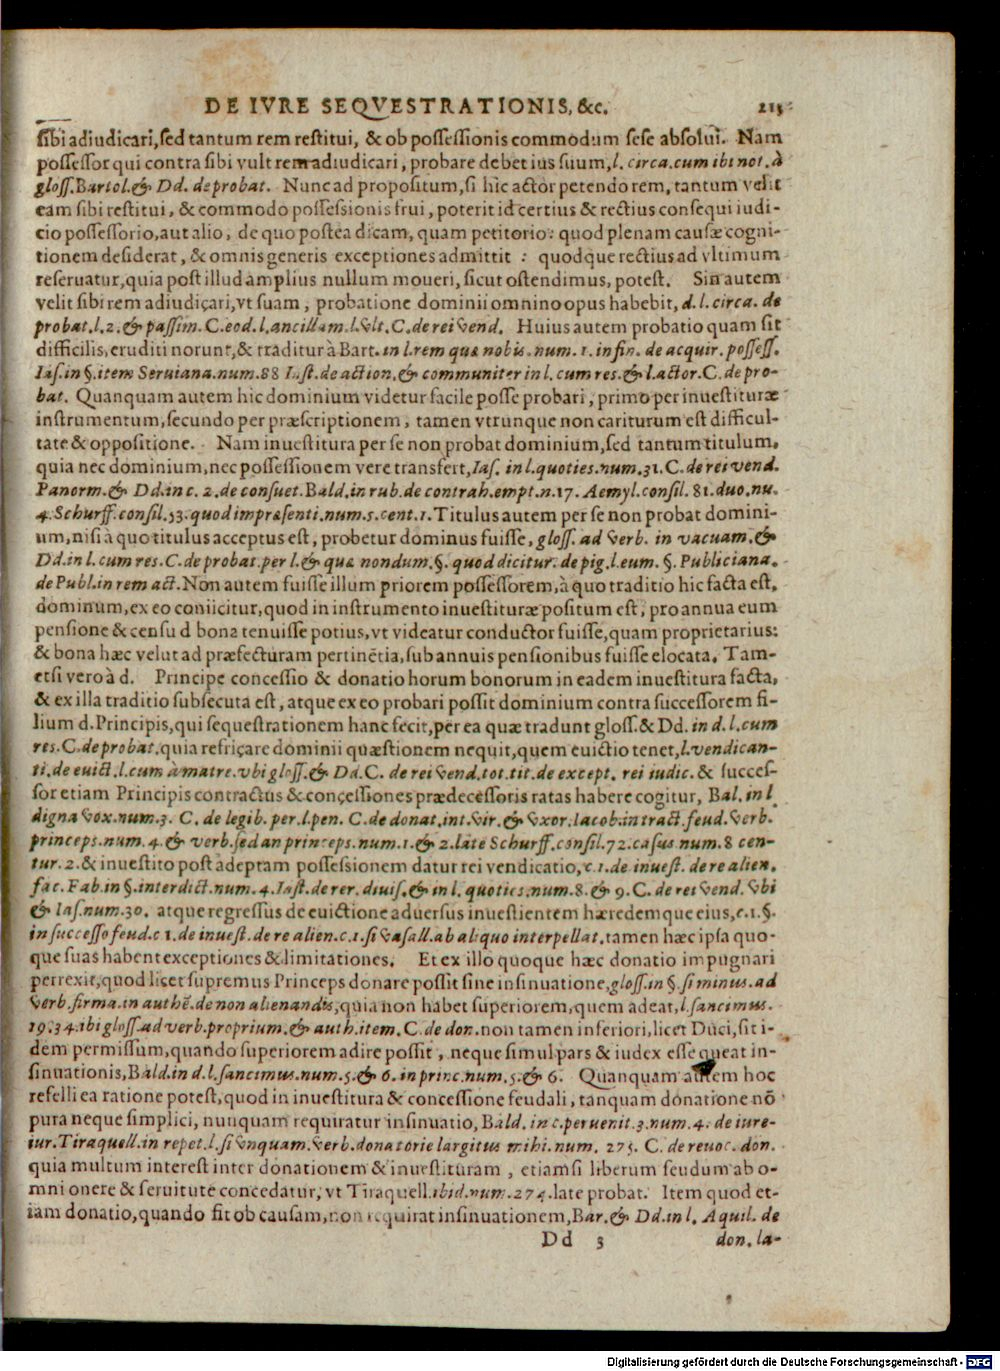 DE IVRE SEQVESTRATIONIS, &c. 215
sibi adiudicari, sed tantum rem restitui, & ob possessionis commodum sese absolui. Nam
possessor qui contra sibi vult rem adiudicari, probare debet ius suum, l. circa. cum ibi not. à
gloss. Bartol. & Dd. de probat. Nunc ad propositum, si hic actor petendo rem, tantum velit
eam sibi restitui, & commodo possessionis frui, poterit id certius & rectius consequi iudi-
cio possessorio, aut alio, de quo postea dicam, quam petitorio: quod plenam causæ cogni-
tionem desiderat, & omnis generis exceptiones admittit: quodque rectius ad vltimum
reseruatur, quia post illud amplius nullum moueri, sicut ostendimus, potest. Sin autem
velit sibi rem adiudiçari, vt suam, probatione dominii omnino opus habebit, d. l. circa. de
probat. l. 2. & passim. C. eod. l. ancillam. l. vlt. C. de rei vend. Huius autem probatio quam sit
difficilis, eruditi norunt, & traditur à Bart. in l. rem quæ nobis. num. 1. in fin. de acquir. possess.
Ias. in §. item Seruiana. num. 88 Inst. de action. & communiter in l. cum res. & l. actor. C. de pro-
bat. Quanquam autem hic dominium videtur facile posse probari, primo per inuestituræ
instrumentum, secundo per præscriptionem, tamen vtrunque non cariturum est difficul-
tate & oppositione. Nam inuestitura per se non probat dominium, sed tantum titulum,
quia nec dominium, nec possessionem vere transfert, Ias. in l. quoties. num. 31. C. de rei vend.
Panorm. & Dd. in c. 2. de consuet. Bald. in rub. de contrah. empt. n. 17. Aemyl. consil. 81. duo. nu.
4. Schurff. consil. 53. quod impræsenti. num. 5. cent. 1. Titulus autem per se non probat domini-
um, nisi à quo titulus acceptus est, probetur dominus fuisse, gloss. ad verb. in vacuam. &
Dd. in l. cum res. C. de probat. per l. & quæ nondum. §. quod dicitur. de pig. l. eum. §. Publiciana.
de Publ. in rem act. Non autem fuisse illum priorem possessorem, à quo traditio hic facta est,
dominum, ex eo coniicitur, quod in instrumento inuestituræ positum est, pro annua eum
pensione & censu d bona tenuisse potius, vt videatur conductor fuisse, quam proprietarius:
& bona hæc velut ad præfecturam pertinētia, sub annuis pensionibus fuisse elocata. Tam-
etsi vero à d. Principe concessio & donatio horum bonorum in eadem inuestitura facta,
& ex illa traditio subsecuta est, atque ex eo probari possit dominium contra successorem fi-
lium d. Principis, qui sequestrationem hanc fecit, per ea quæ tradunt gloss. & Dd. in d. l. cum
res. C. de probat. quia refriçare dominii quæstionem nequit, quem euictio tenet, l. vendican-
ti. de euict. l. cum à matre. vbi gloss. & Dd. C. de rei vend. tot. tit. de except. rei iudic. & succes-
sor etiam Principis contractus & conçessiones prædecessoris ratas habere cogitur, Bal. in l
digna vox. num. 3. C. de legib. per. l. pen. C. de donat. int. vir. & vxor. Iacob. in tract. feud. verb.
princeps. num. 4. & verb. sed an princeps. num. 1. & 2. late Schurff. consil. 72. casus. num. 8 cen-
tur. 2. & inuestito post adeptam possessionem datur rei vendicatio, c. 1. de inuest. de re alien.
fac. Fab. in §. interdict. num. 4. Inst. de rer. diuis. & in l. quoties. num. 8. & 9. C. de rei vend. vbi
& Ias. num. 30. atque regressus de euictione aduersus inuestientem hæredemque eius, c. 1. §.
in successo feud. c 1. de inuest. de re alien. c. 1. si vasall. ab aliquo interpellat. tamen hæc ipsa quo-
que suas habent exceptiones & limitationes. Et ex illo quoque hæc donatio impugnari
perrexit, quod licet supremus Princeps donare possit sine insinuatione, gloss. in §. si minus. ad
verb. firma. in authē. de non alienandis, quia non habet superiorem, quem adeat, l. sancimus.
19. 34. ibi gloss. ad verb. proprium. & auth. item. C. de don. non tamen inferiori, licet Duci, sit i-
dem permissum, quando superiorem adire possit, neque simul pars & iudex esse queat in-
sinuationis, Bald. in d. l. sancimus. num. 5. & 6. in princ. num. 5. & 6. Quanquam autem hoc
refelli ea ratione potest, quod in inuestitura & concessione feudali, tanquam donatione nō
pura neque simplici, nunquam requiratur insinuatio, Bald. in c. peruenit. 3. num. 4. de iure-
iur. Tiraquell. in repet. l. si vnquam. verb. donatorie largitus mihi. num. 275. C. de reuoc. don.
quia multum interest inter donationem & inuestituram, etiamsi liberum feudum ab o-
mni onere & seruitute concedatur, vt Tiraquell. ibid. num. 274. late probat. Item quod et-
iam donatio, quando fit ob causam, non requirat insinuationem, Bar. & Dd. in l. Aquil. de
Dd 3 don. la-
Digitalisierung gefördert durch die Deutsche Forschungsgemeinschaft - DFG